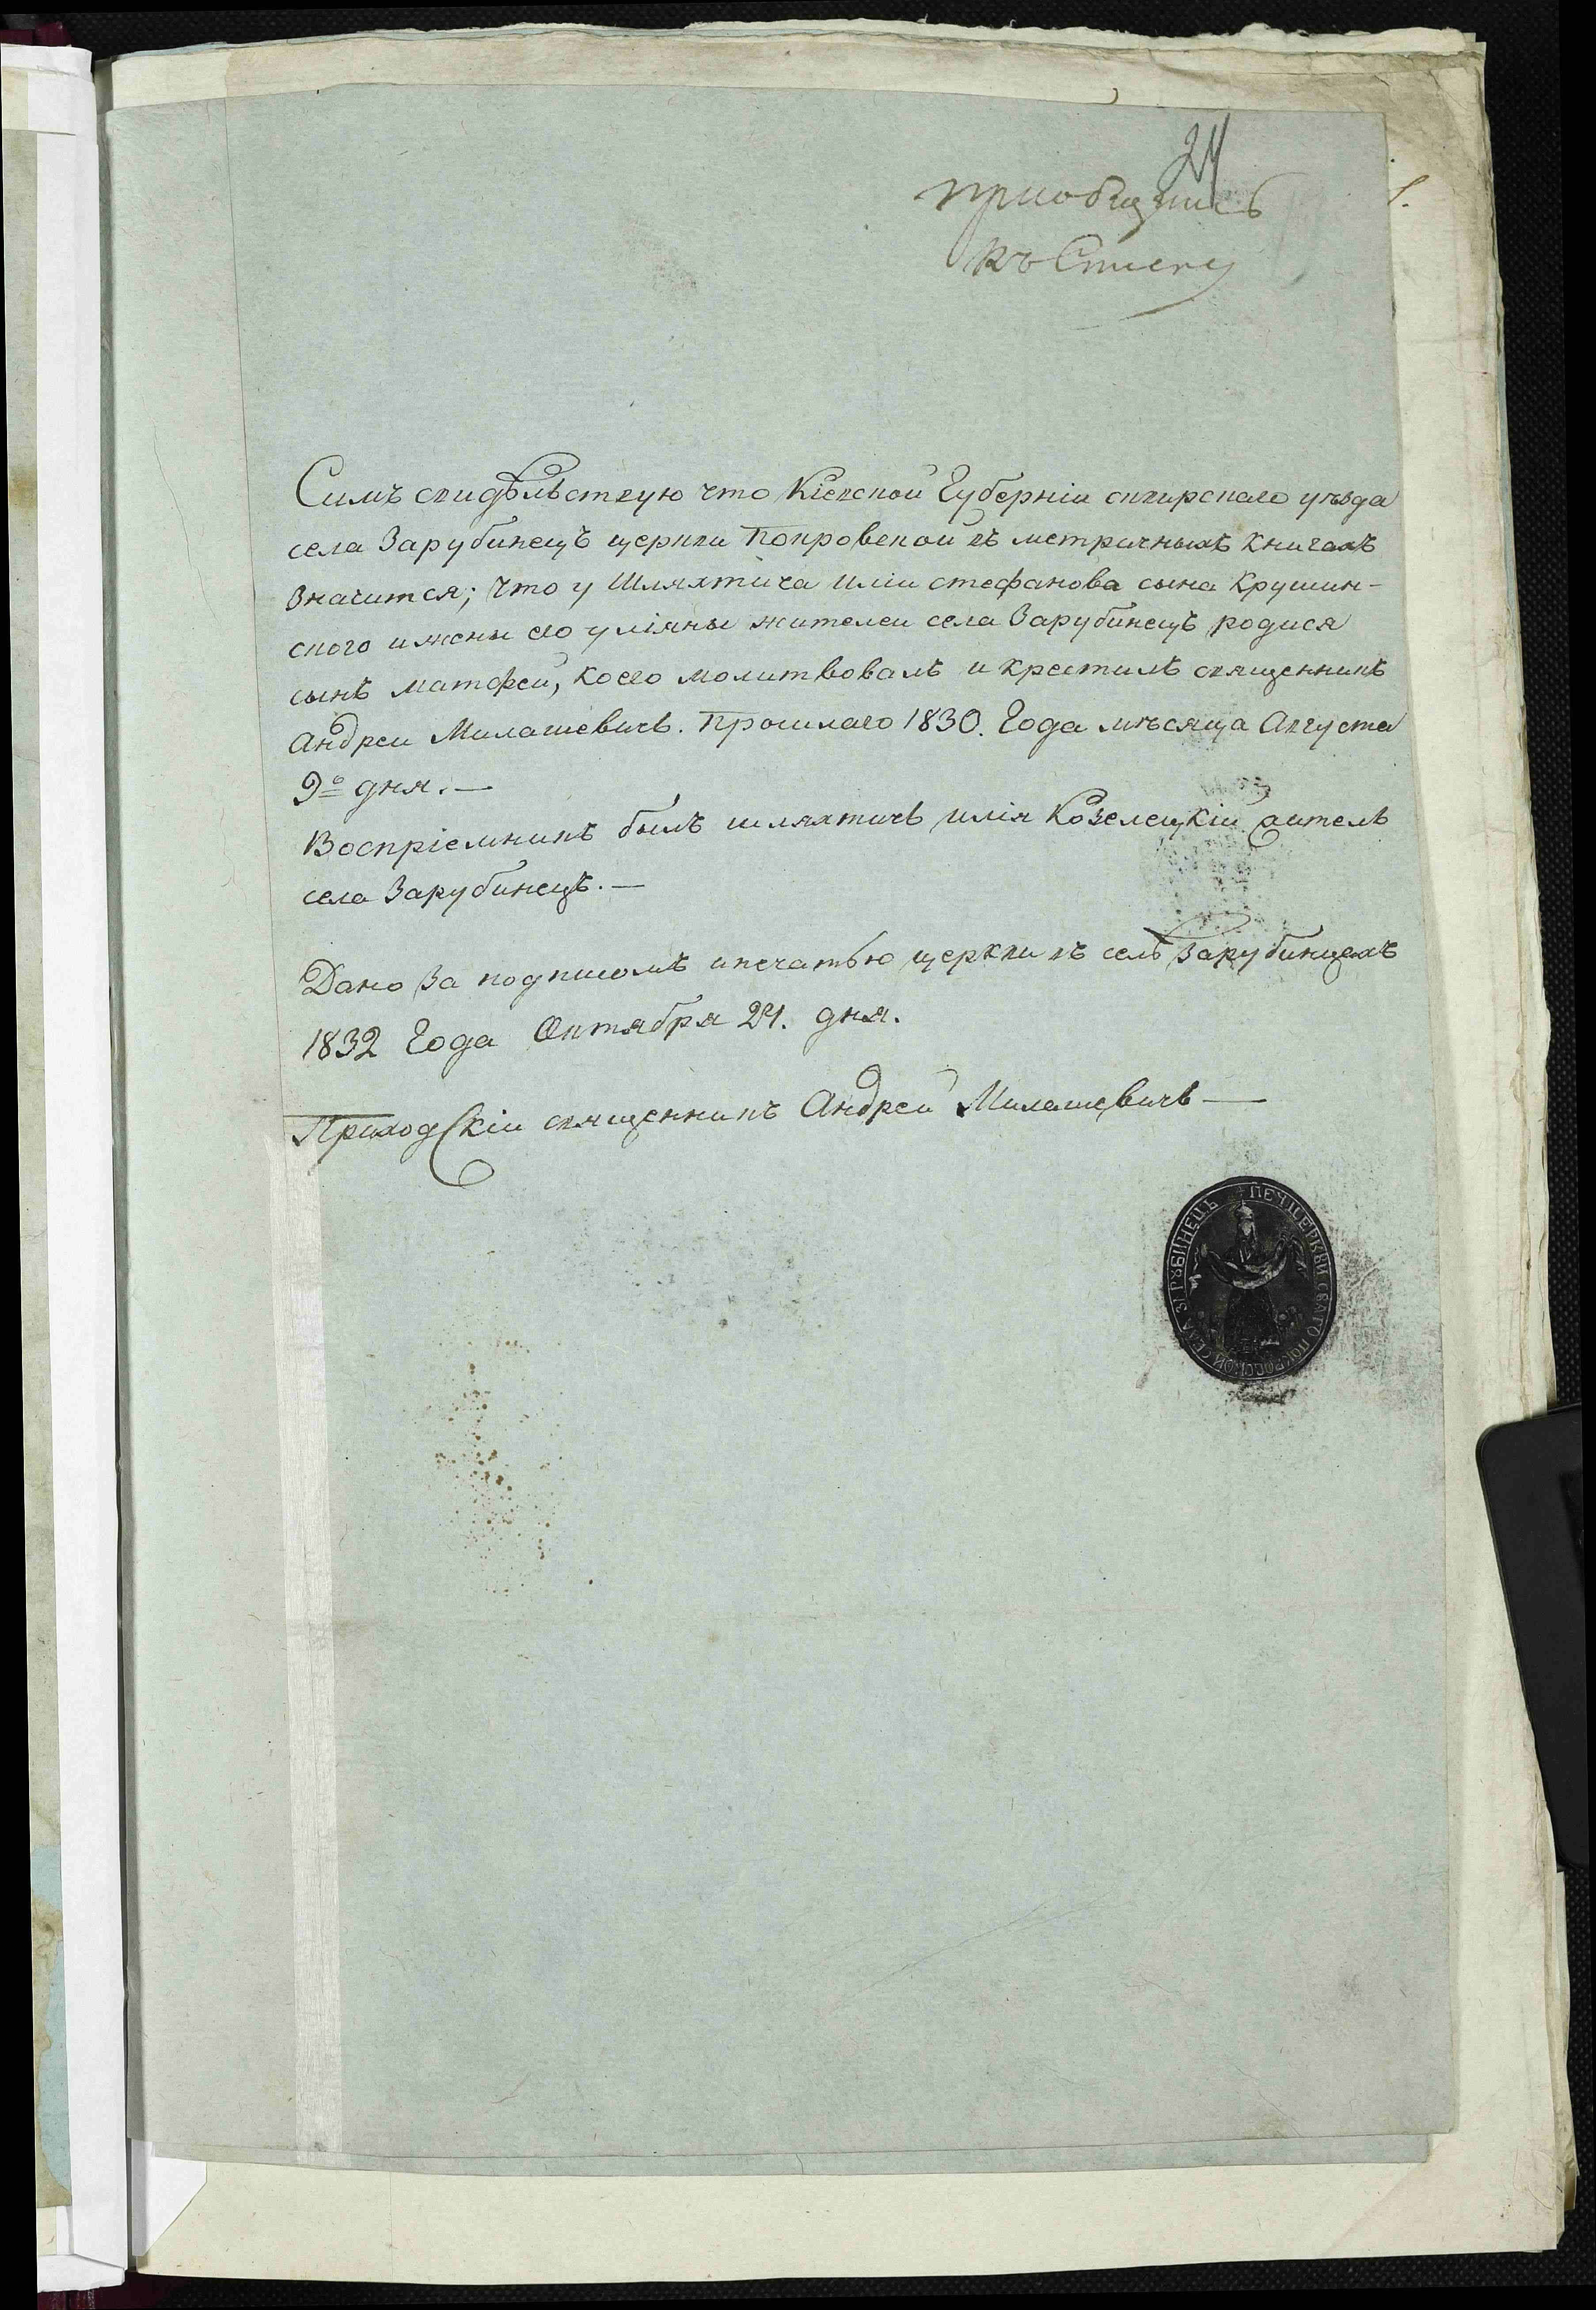 24
приобщить
къ Списку
Симъ свидѣтельствую что Кіевской Губерніи сквирскаго уѣзда
села Зарубинецъ церкви Покровской въ метричныхъ книгахъ
значится; что у Шляхтича Иліи стефанова сына Крушин-
ского и жены его уліяны жителей села Зарубинецъ родися
сынъ матфей, коего молитвовалъ и крестилъ священникъ
Андрей Милашевичъ. Прошлаго 1830. Года мѣсяца Августа
9º дня. —
Воспріемникъ былъ шляхтичъ илія Козелецкій житель
села Зарубинецъ. —
Дано за подписомъ и печатью церкви въ селѣ Зарубинцахъ
1832 Года Октября 24. дня.
Приходскій священникъ Андрей Милашевичъ —
ПЕЧ ЦЕРКВИ СВАГО ПОКРОВСКОЙ СЕЛА ЗАРУБИНЕЦЪ